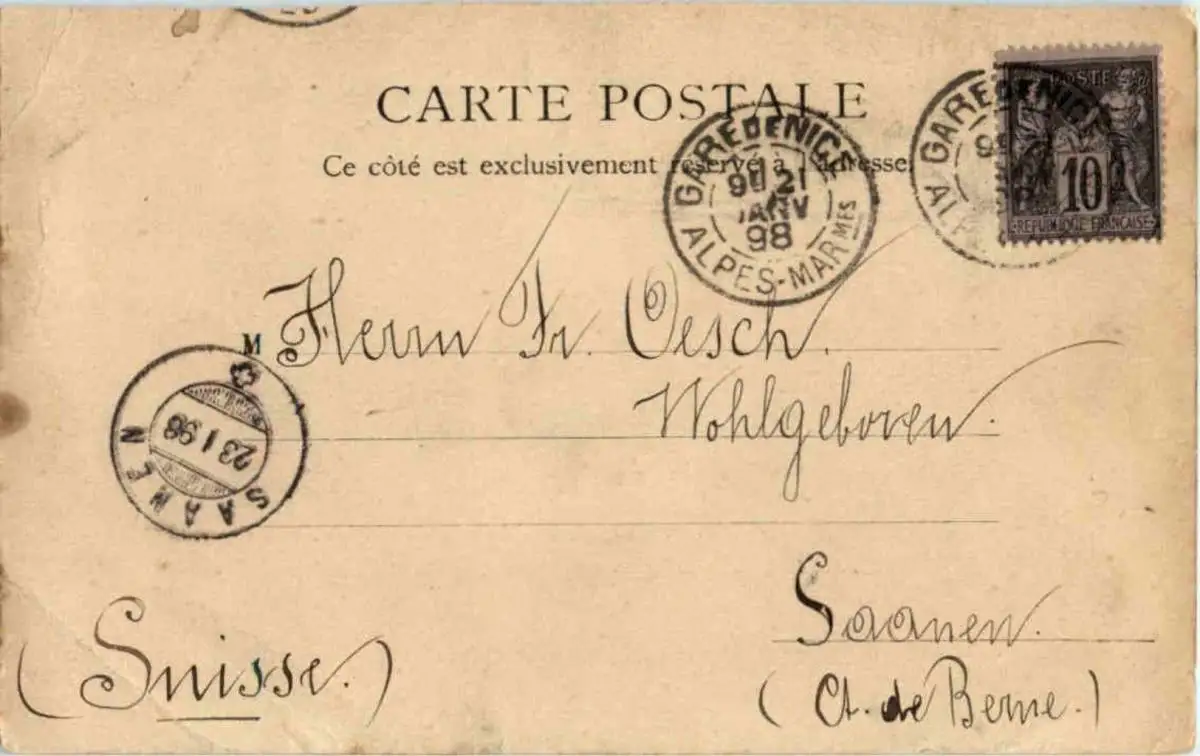 CARTE POSTALE
Ce côté est exclusivement réservé à l'Adresse.
GARE DE NICE
21
JANV
98
ALPES-MARMES
GARE DE NICE
POSTE
10
REPUBLIQUE FRANÇAISE
M Herrn Fr. Oesch.
Wohlgeboren.
SAANEN
23 I 98
Saanen.
(Suisse.)
(Ct. de Berne.)